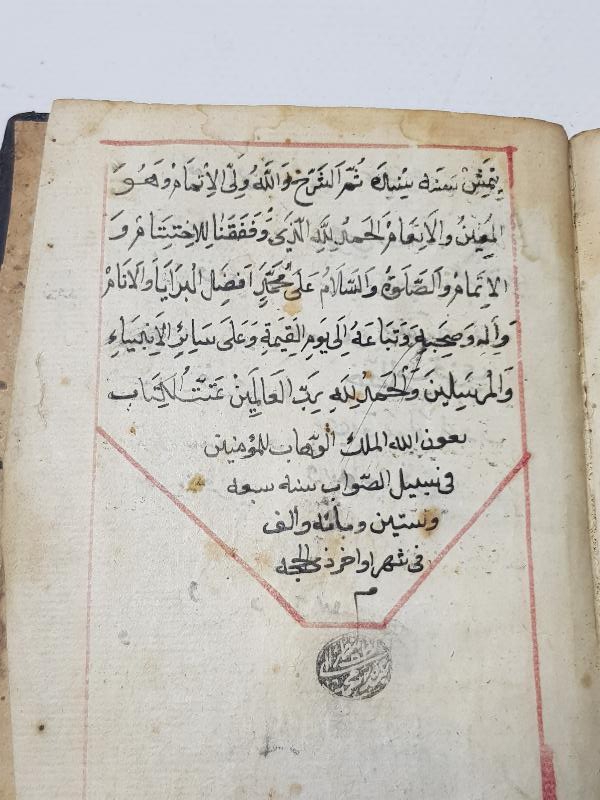 سنه ثم الشرح والله ولى الاتمام وهو
المعين والانعام الحمد لله الذى وفقنا للاختتام و
الاتمام والصلوة والسلام على محمد افضل البرايا والانام
واله وصحبه وتباعه الى يوم القيمة وعلى سائر الانبياء
والمرسلين والحمد لله رب العالمين تمت الكتاب
بعون الله الملك الوهاب للمؤمنين
فى سبيل الصواب سنه سبعه
وستين ومأئه والف
فى شهر اواخر ذى الحجه
م